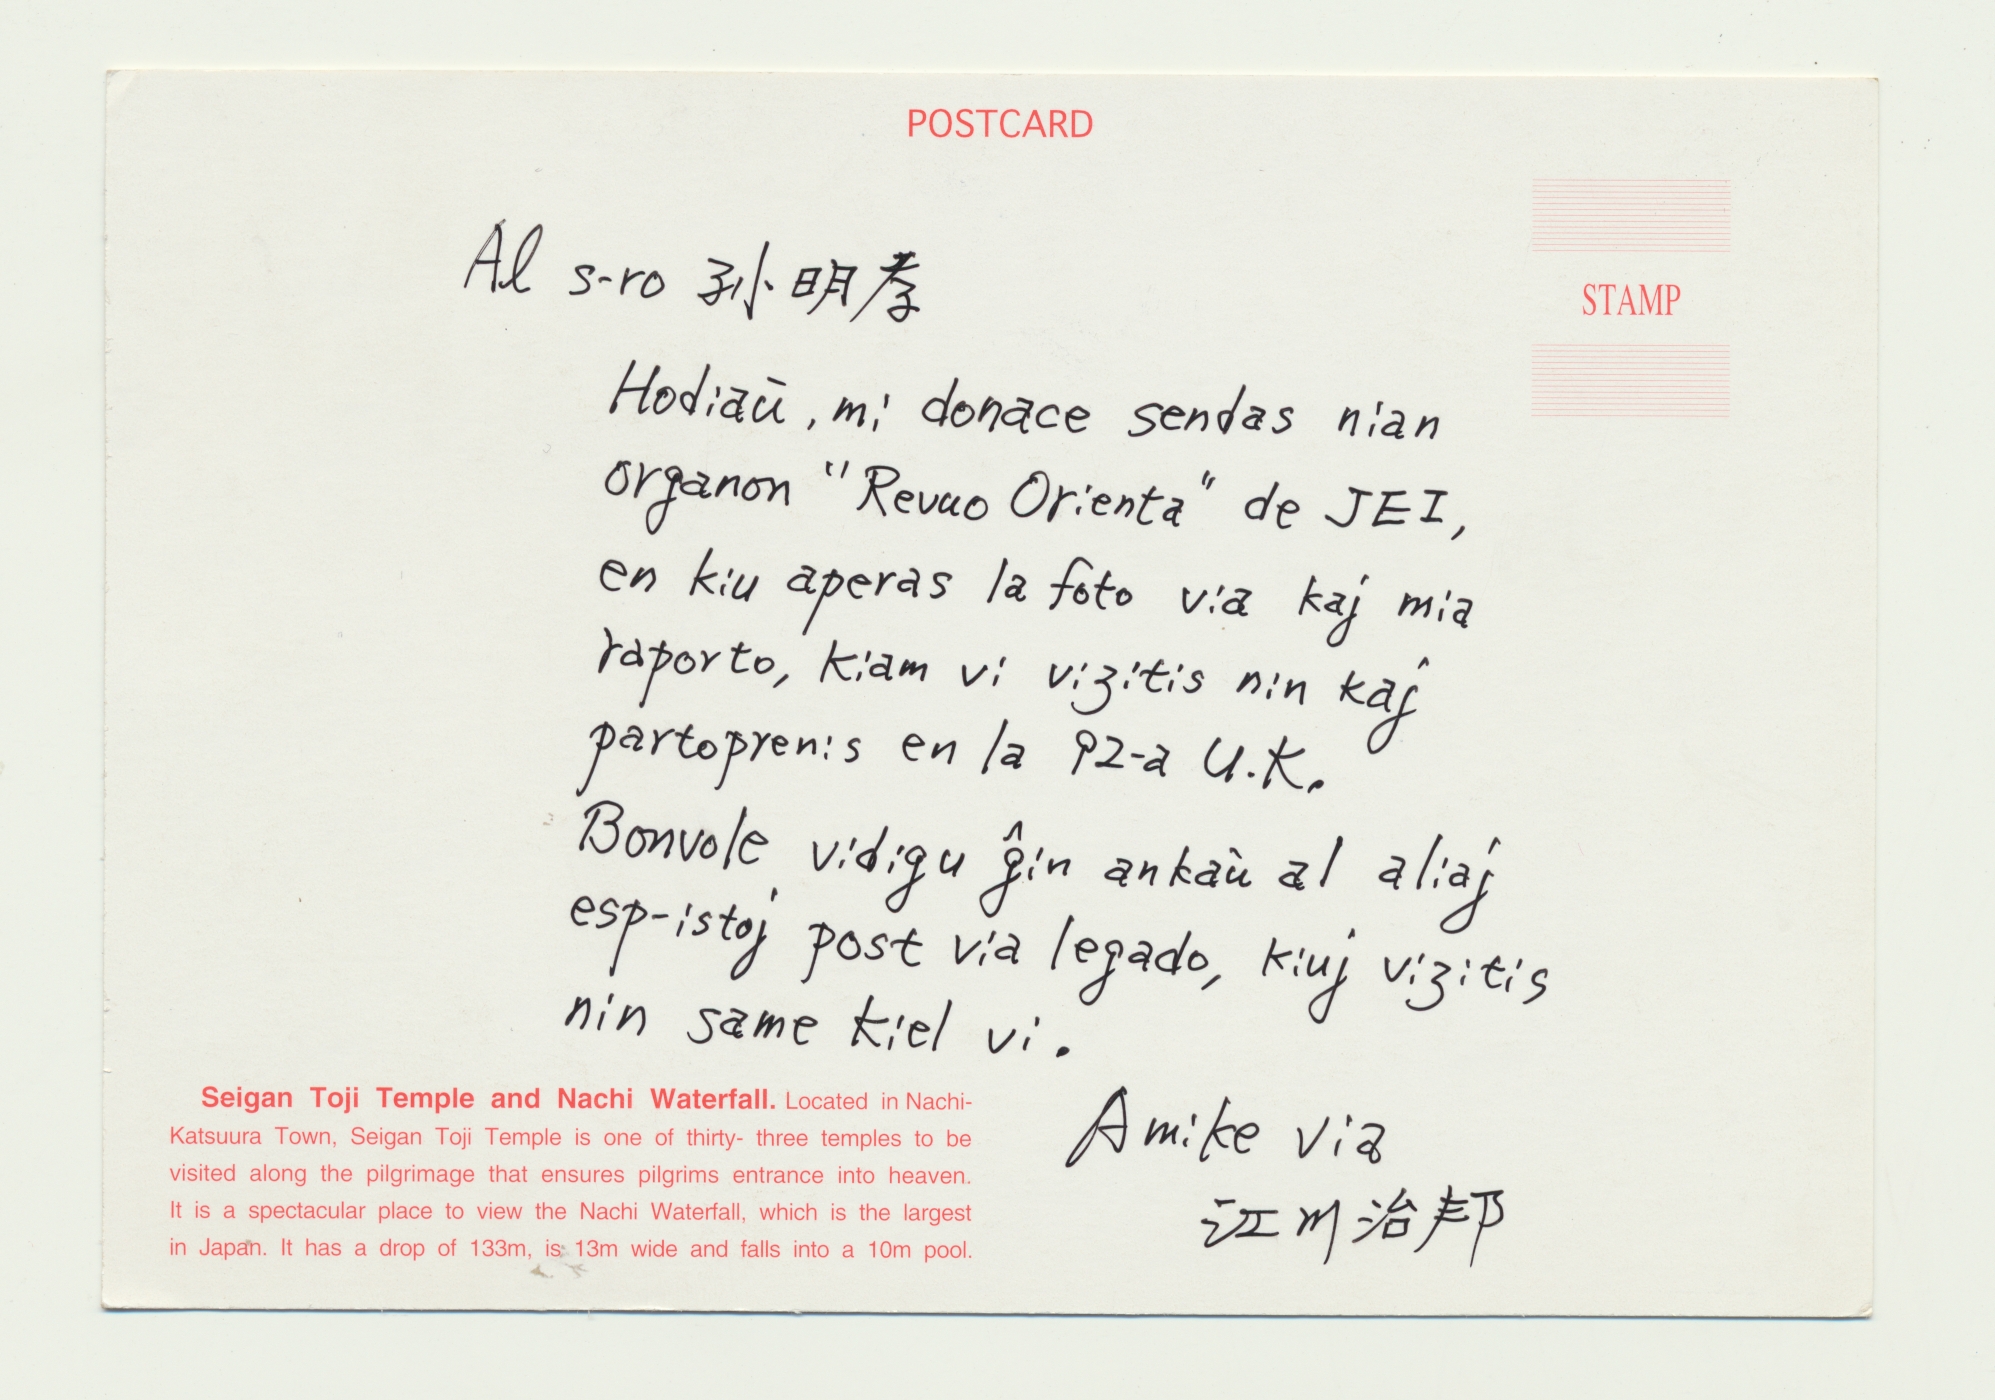 POSTCARD
STAMP
Al s-ro 孙明孝
Hodiaŭ, mi donace sendas nian
organon "Revuo Orienta" de JEI,
en kiu aperas la foto via kaj mia
raporto, kiam vi vizitis nin kaj
partoprenis en la 92-a U.K.
Bonvole vidigu ĝin ankaŭ al aliaj
esp-istoj post via legado, kiuj vizitis
nin same kiel vi.
Amike via
江川治邦
Seigan Toji Temple and Nachi Waterfall. Located in Nachi-
Katsuura Town, Seigan Toji Temple is one of thirty- three temples to be
visited along the pilgrimage that ensures pilgrims entrance into heaven.
It is a spectacular place to view the Nachi Waterfall, which is the largest
in Japan. It has a drop of 133m, is 13m wide and falls into a 10m pool.